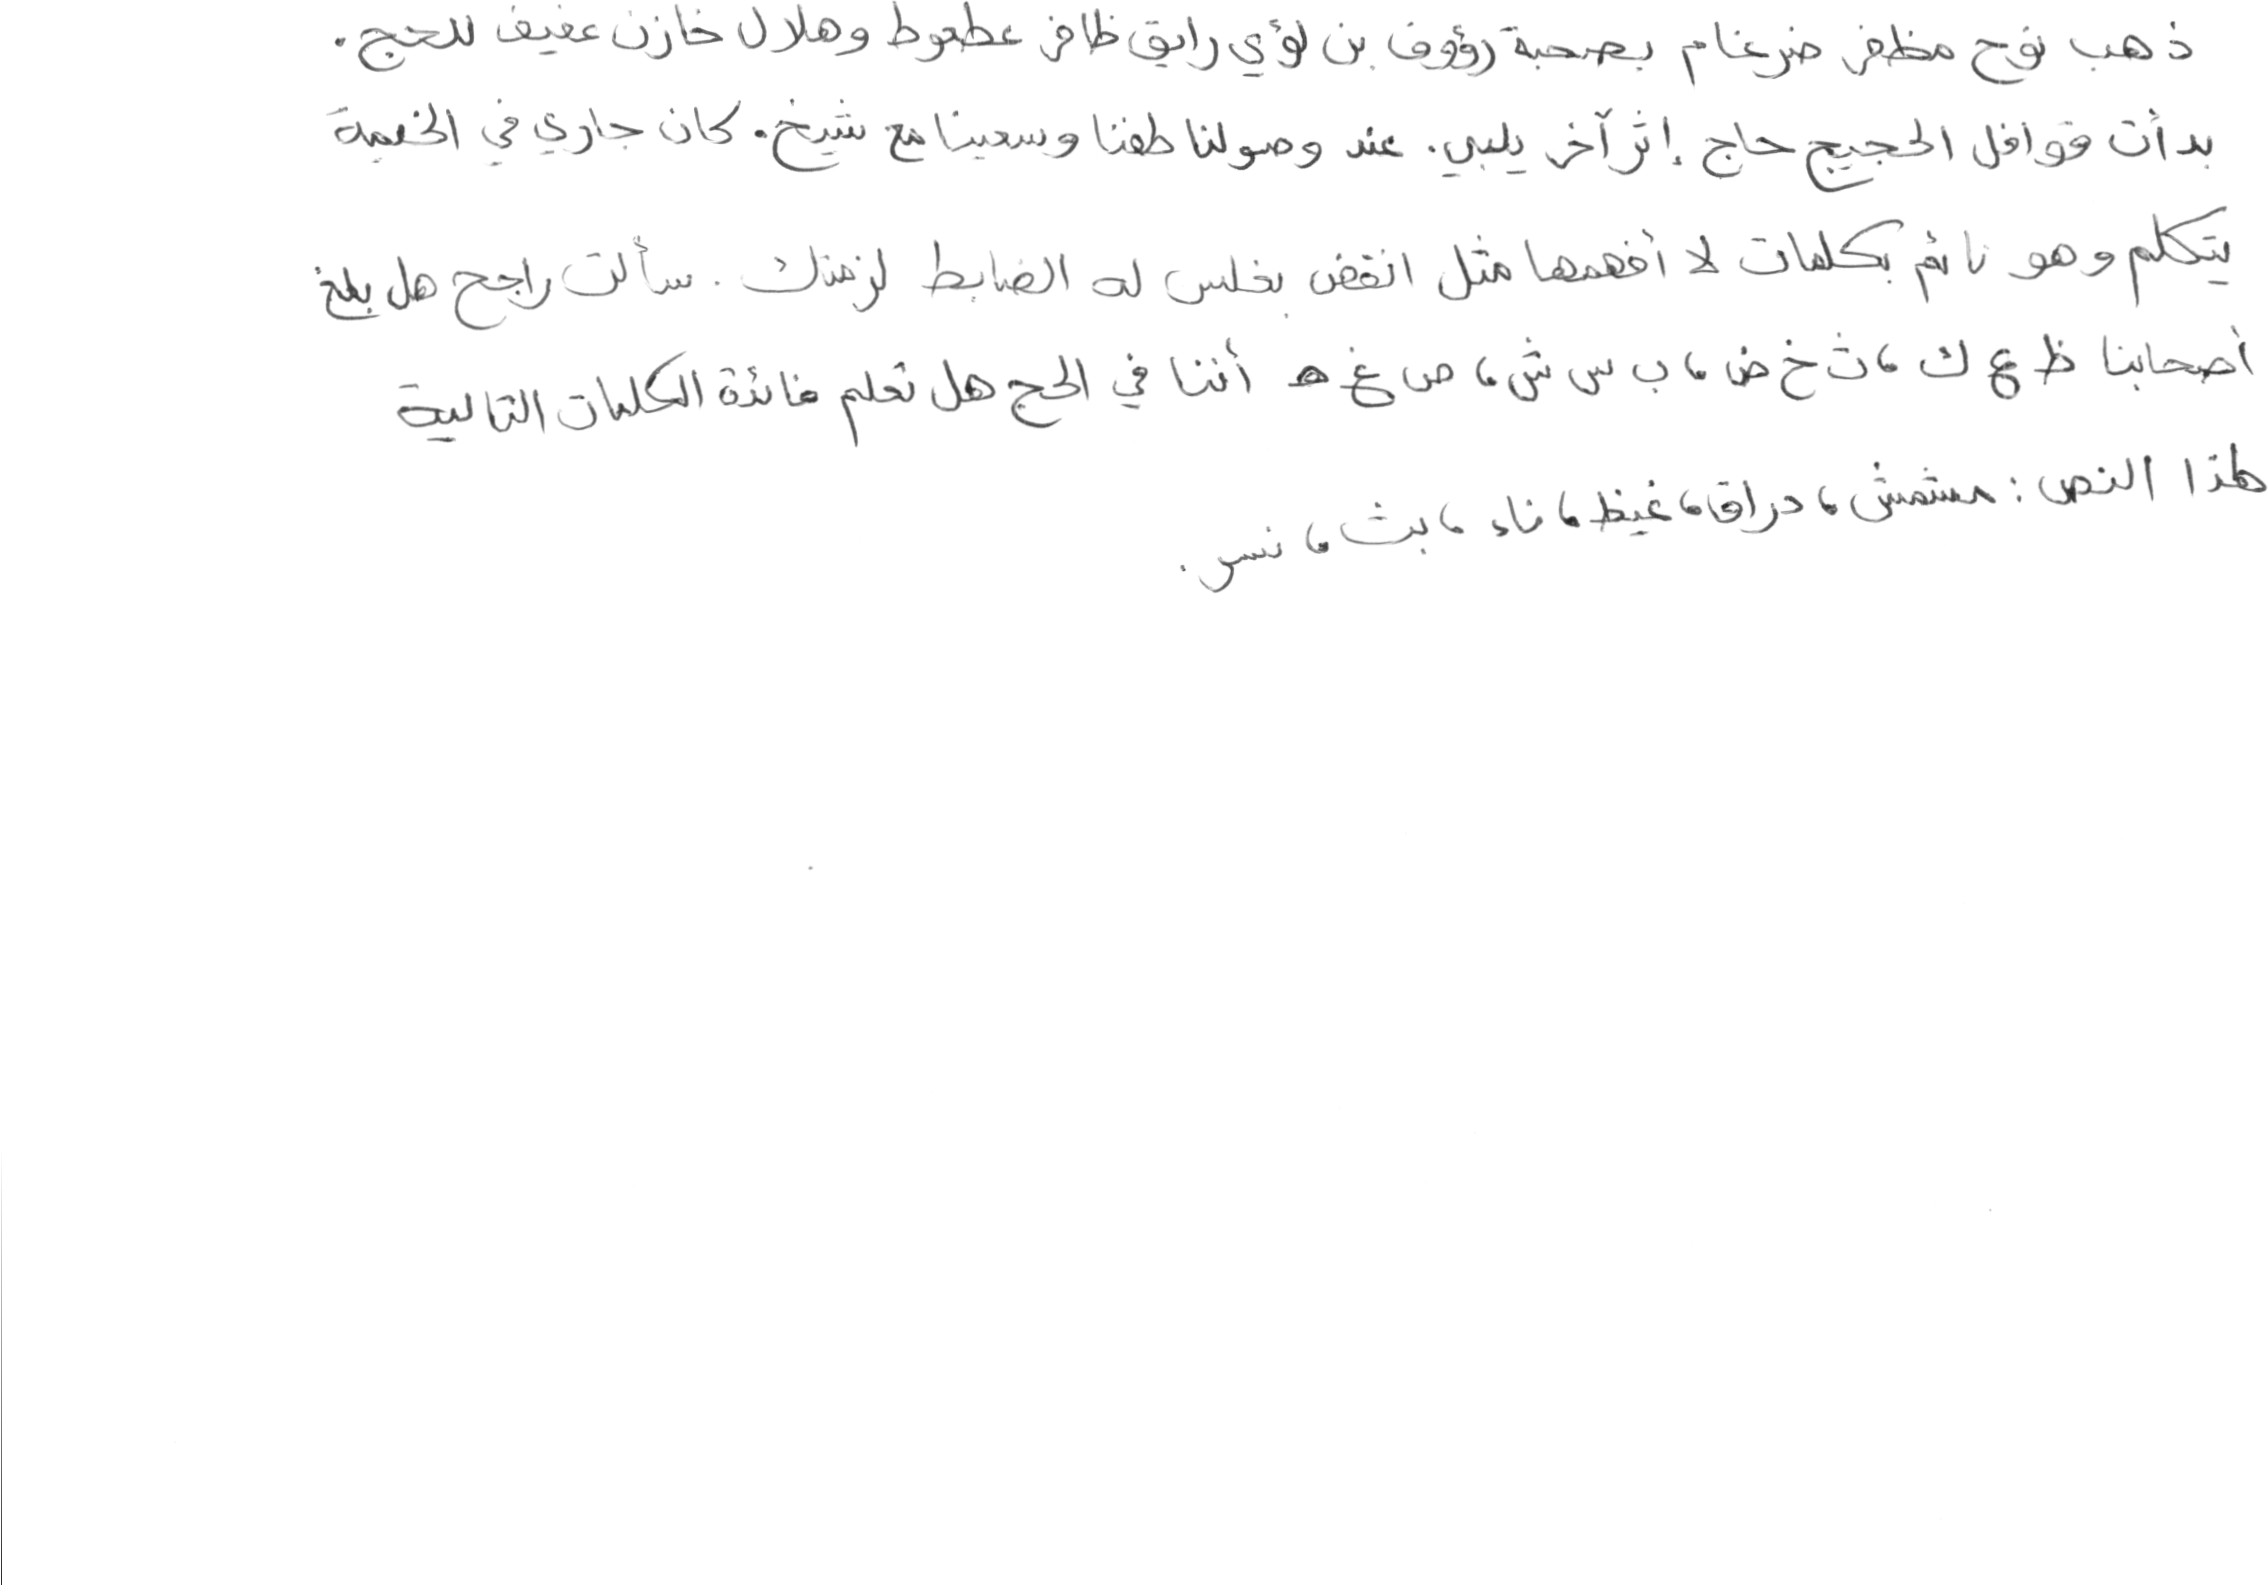 ذهب نوح مظفر ضرغام بصحبة رؤوف بن لؤي رايق ظافر عطعوط وهلال خازن عفيف للحج.
بدأت قوافل الحجيج حاج إثر آخر يلبي. عند وصولنا طفنا وسعينا مع شيخ. كان جاري في الخيمة
يتكلم وهو نائم بكلمات لا أفهمها مثل انقض بخلس له الضابط لزمتك. سألت راجح هل بلغ
أصحابنا ظ ع ك، ث خ ض، ب س ش، ص غ ه أننا في الحج هل تعلم فائدة الكلمات التالية
هذا النص: مشمش، دراق، غيظ، ناء، بث، نسر.